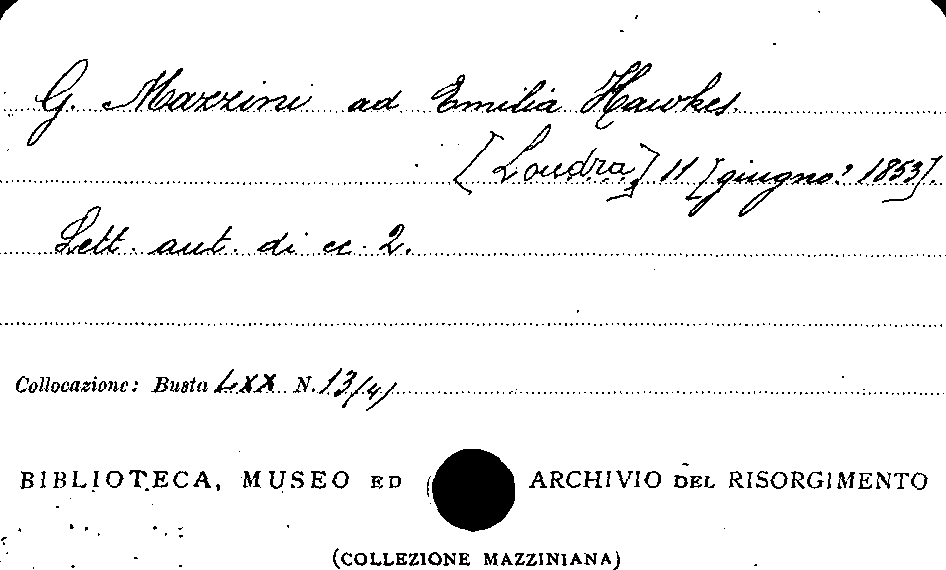 G. Mazzini ad Emilia Hawkes.
[Londra] 11 [giugno? 1853].
Lett. aut. di cc. 2.
Collocazione: Busta LXX N. 13/4/
BIBLIOTECA, MUSEO ED ARCHIVIO DEL RISORGIMENTO
(COLLEZIONE MAZZINIANA)